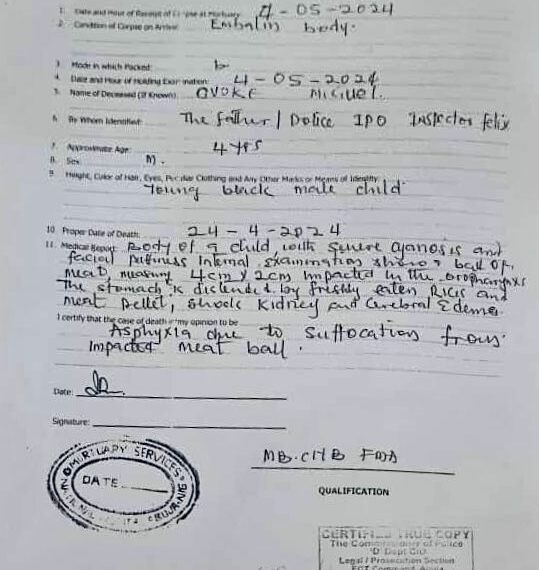 1. Date and Hour of Receipt of Corpse at Mortuary: 4-05-2024
2. Condition of Corpse on Arrival: Embalm body.
3. Mode in which Packed:
4. Date and Hour of Holding Examination: 4-05-2024
5. Name of Deceased (If Known): OVOKE
6. By Whom Identified: The father / Police IPO Inspector felix
7. Approximate Age: 4 yrs
8. Sex: M.
9. Height, Color of Hair, Eyes, Peculiar Clothing and Any Other Marks or Means of Identity:
Young black male child
10. Proper Date of Death: 24-4-2024
11. Medical Report: Body of a child with severe cyanosis and
facial puffiness Internal examination shows ball of
meat, measuring 4cm x 2cm impacted in the oropharynx
The stomach is distended by freshly eaten and
meat pellet, shock kidney and Cerebral Edema
I certify that the case of death in my opinion to be
Asphyxia due to suffocation from
Impacted meat ball.
Date:
Signature:
MORTUARY SERVICES
DATE
QUALIFICATION
CERTIFIED TRUE COPY
The Commissioner of Police
'D' Dept CID
Legal / Prosecution Section
FCT Command Abuja